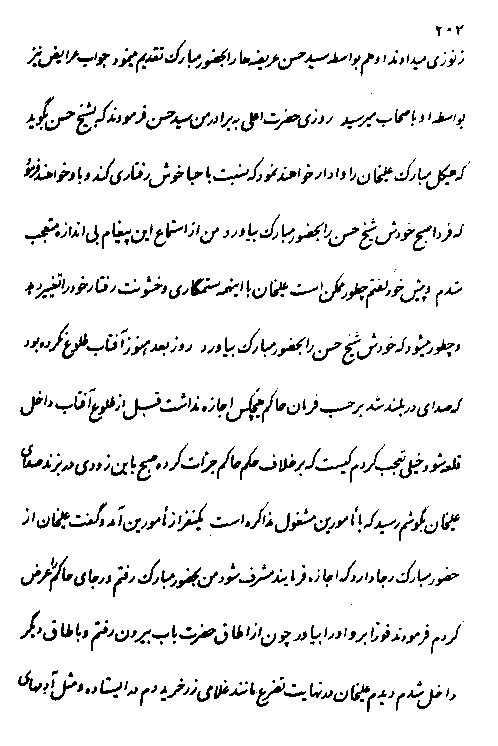 ۲۰۲
زنوزی میدادند او هم بواسطه سید حسن عریضه ها را بحضور مبارک تقدیم مینمود جواب عرایض نیز
بواسطه او باصحاب میرسید روزی حضرت اعلی به برادر من سید حسن فرمودند که بشیخ حسن بگوید
که هیکل مبارک علیخان را وادار خواهند نمود که نسبت باحبا خوش رفتاری کند و باو خواهند فرمود
که فردا صبح خودش شیخ حسن را بحضور مبارک بیاورد من از استماع این پیغام بی اندازه متعجب
شدم و پیش خود گفتم چطور ممکن است علیخان با اینهمه ستمکاری و خشونت رفتار خود را تغییر دهد
و چطور میشود که خودش شیخ حسن را بحضور مبارک بیاورد روز بعد هنوز آفتاب طلوع نکرده بود
که صدای در بلند شد بر حسب فرمان حاکم هیچکس اجازه نداشت قبل از طلوع آفتاب داخل
قلعه شود خیلی تعجب کردم کیست که بر خلاف حکم حاکم جرئت کرده صبح باین زودی در بزند صدای
علیخان بگوشم رسید که با مأمورین مشغول مذاکره است یکنفر از مأمورین آمد و گفت علیخان از
حضور مبارک رجا دارد که اجازه فرمایند مشرف شود من بحضور مبارک رفتم و رجای حاکم را عرض
کردم فرمودند فوراً برو او را بیاور چون از اطاق حضرت باب بیرون رفتم و باطاق دیگر
داخل شدم دیدم علیخان در نهایت تضرع مانند غلامی زرخرید دم در ایستاده و مثل آدمهای